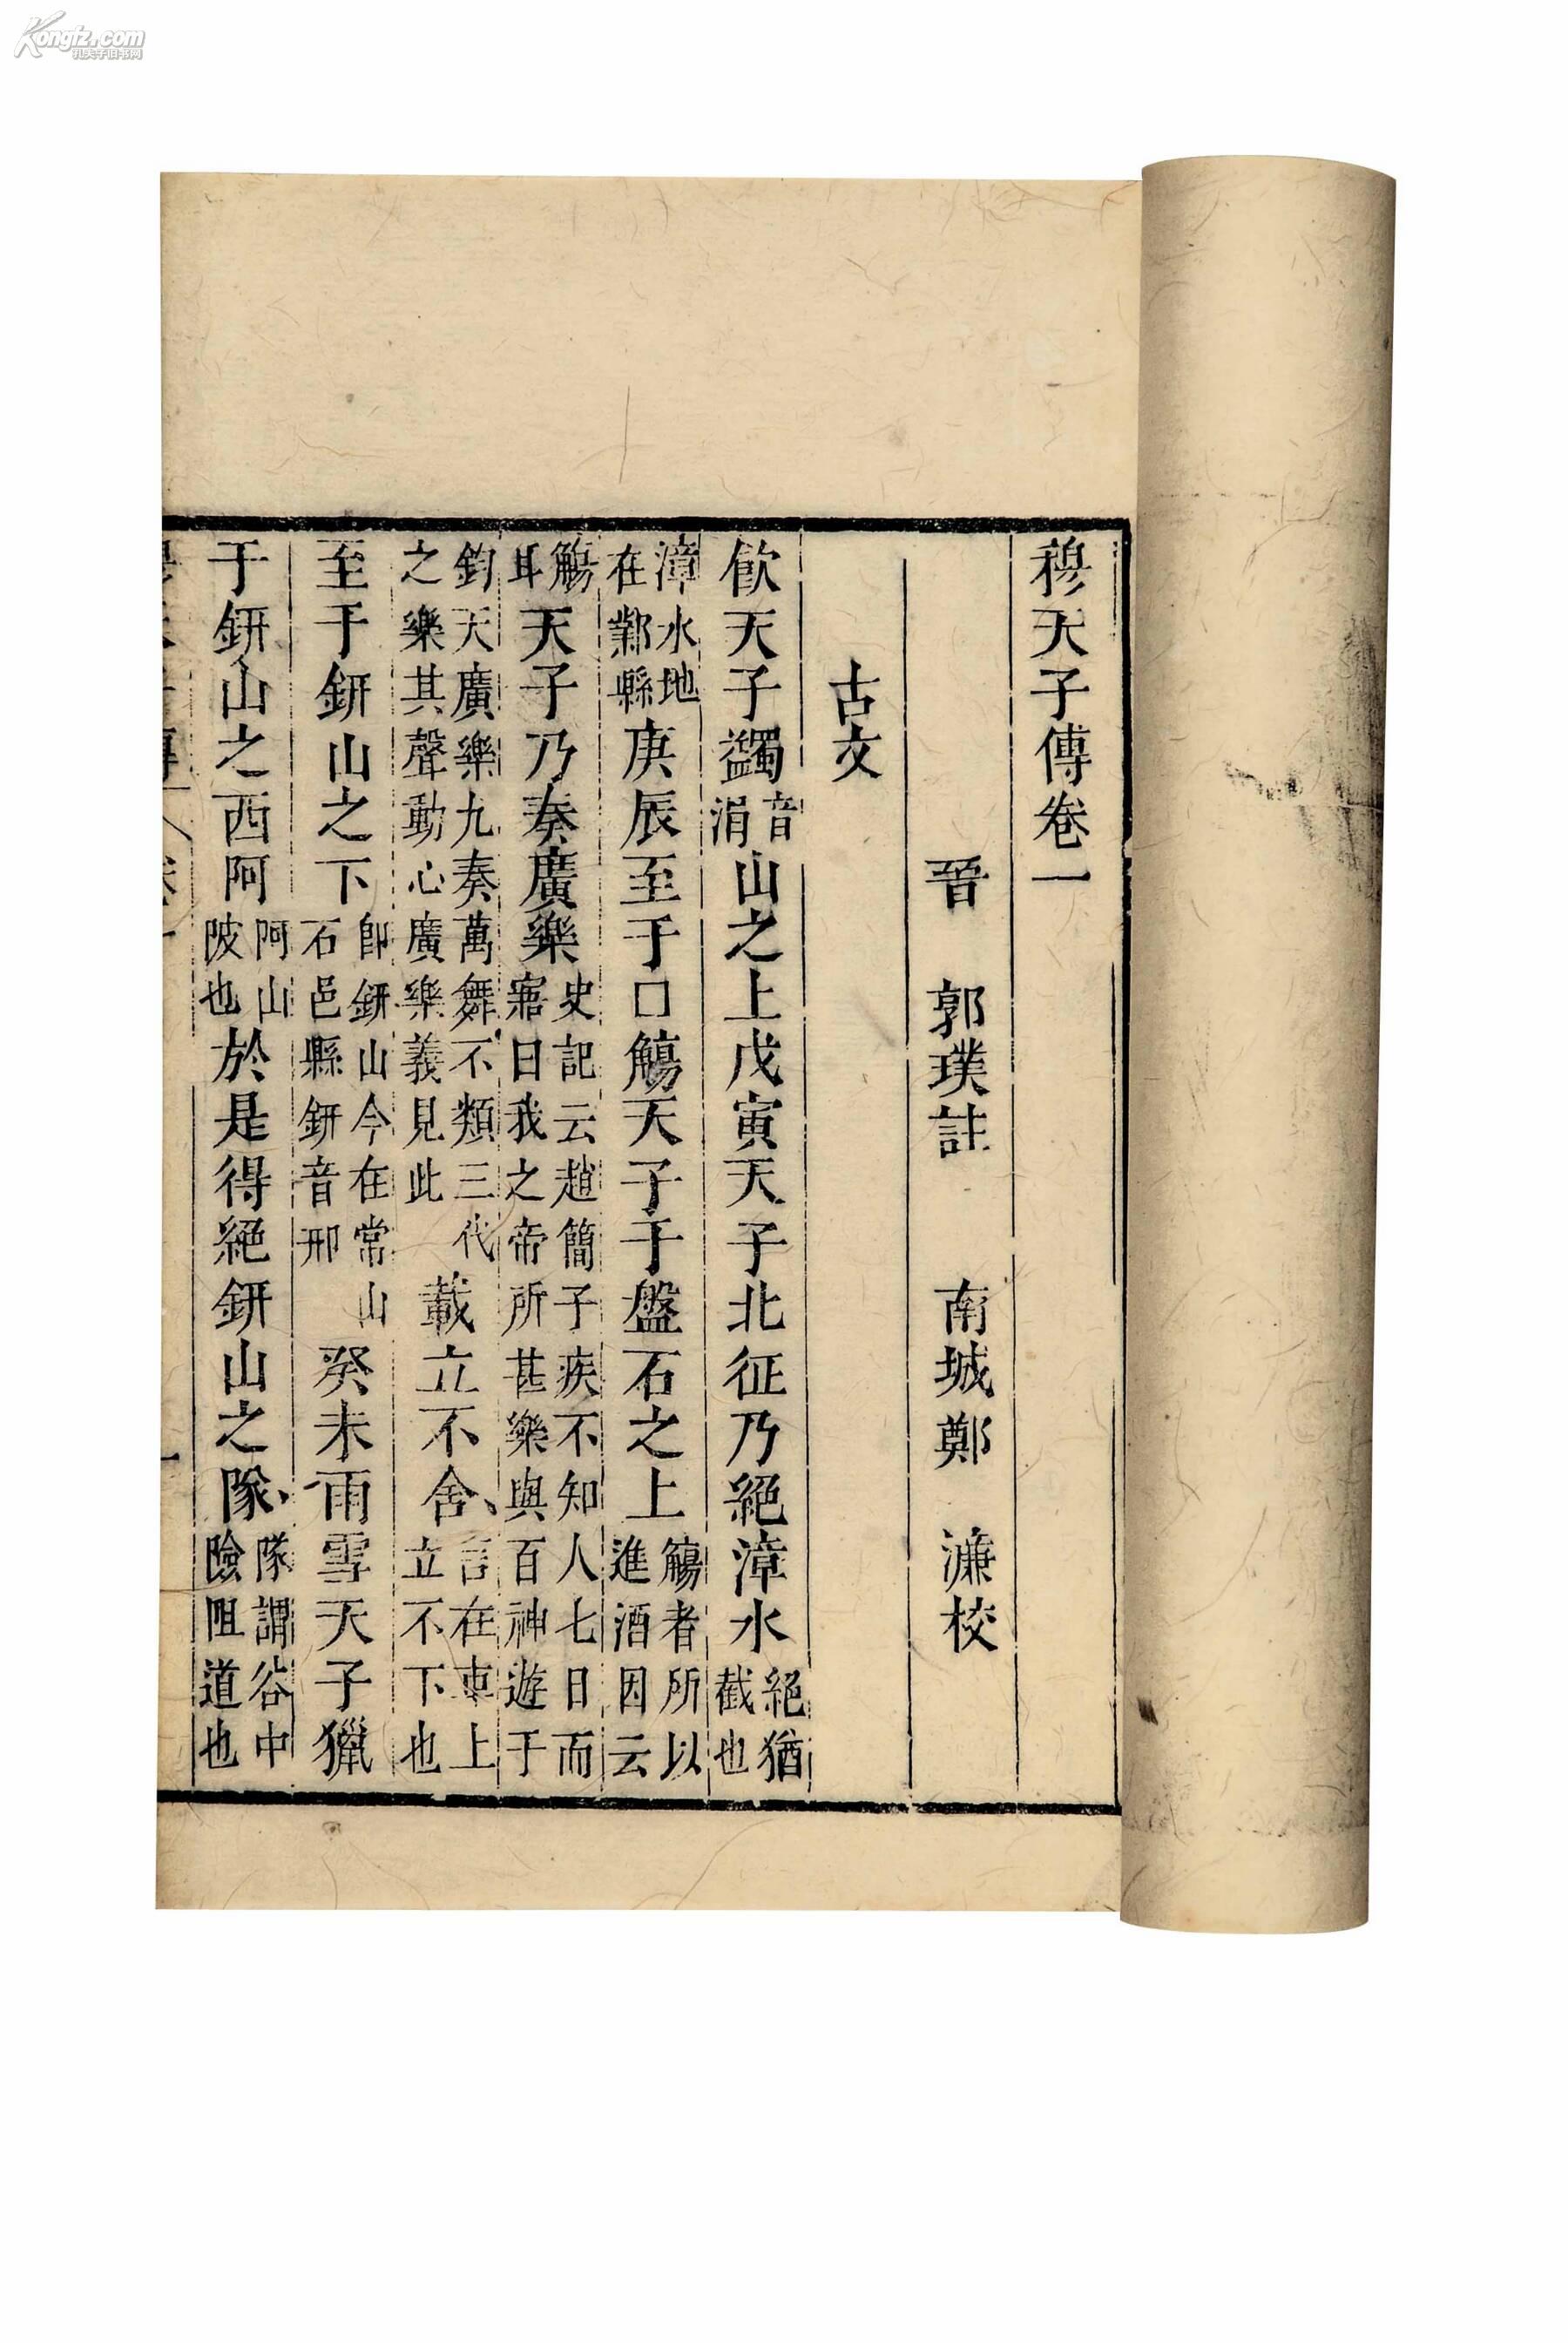 Kongfz.com
孔夫子旧书网
穆天子傳卷一
晉 郭璞註 南城鄭 濂校
古文
飲天子蠲音涓山之上戊寅天子北征乃絕漳水絕猶截也
漳水地在鄴縣庚辰至于□觴天子于盤石之上觴者所以進酒因云
觴耳天子乃奏廣樂史記云趙簡子疾不知人七日而寤曰我之帝所甚樂與百神遊于
鈞天廣樂九奏萬舞不類三代之樂其聲動心廣樂義見此載立不舍言在車上立不下也
至于鈃山之下即鈃山今在常山石邑縣鈃音邢癸未雨雪天子獵
于鈃山之西阿阿山陂也於是得絕鈃山之隊隊謂谷中險阻道也